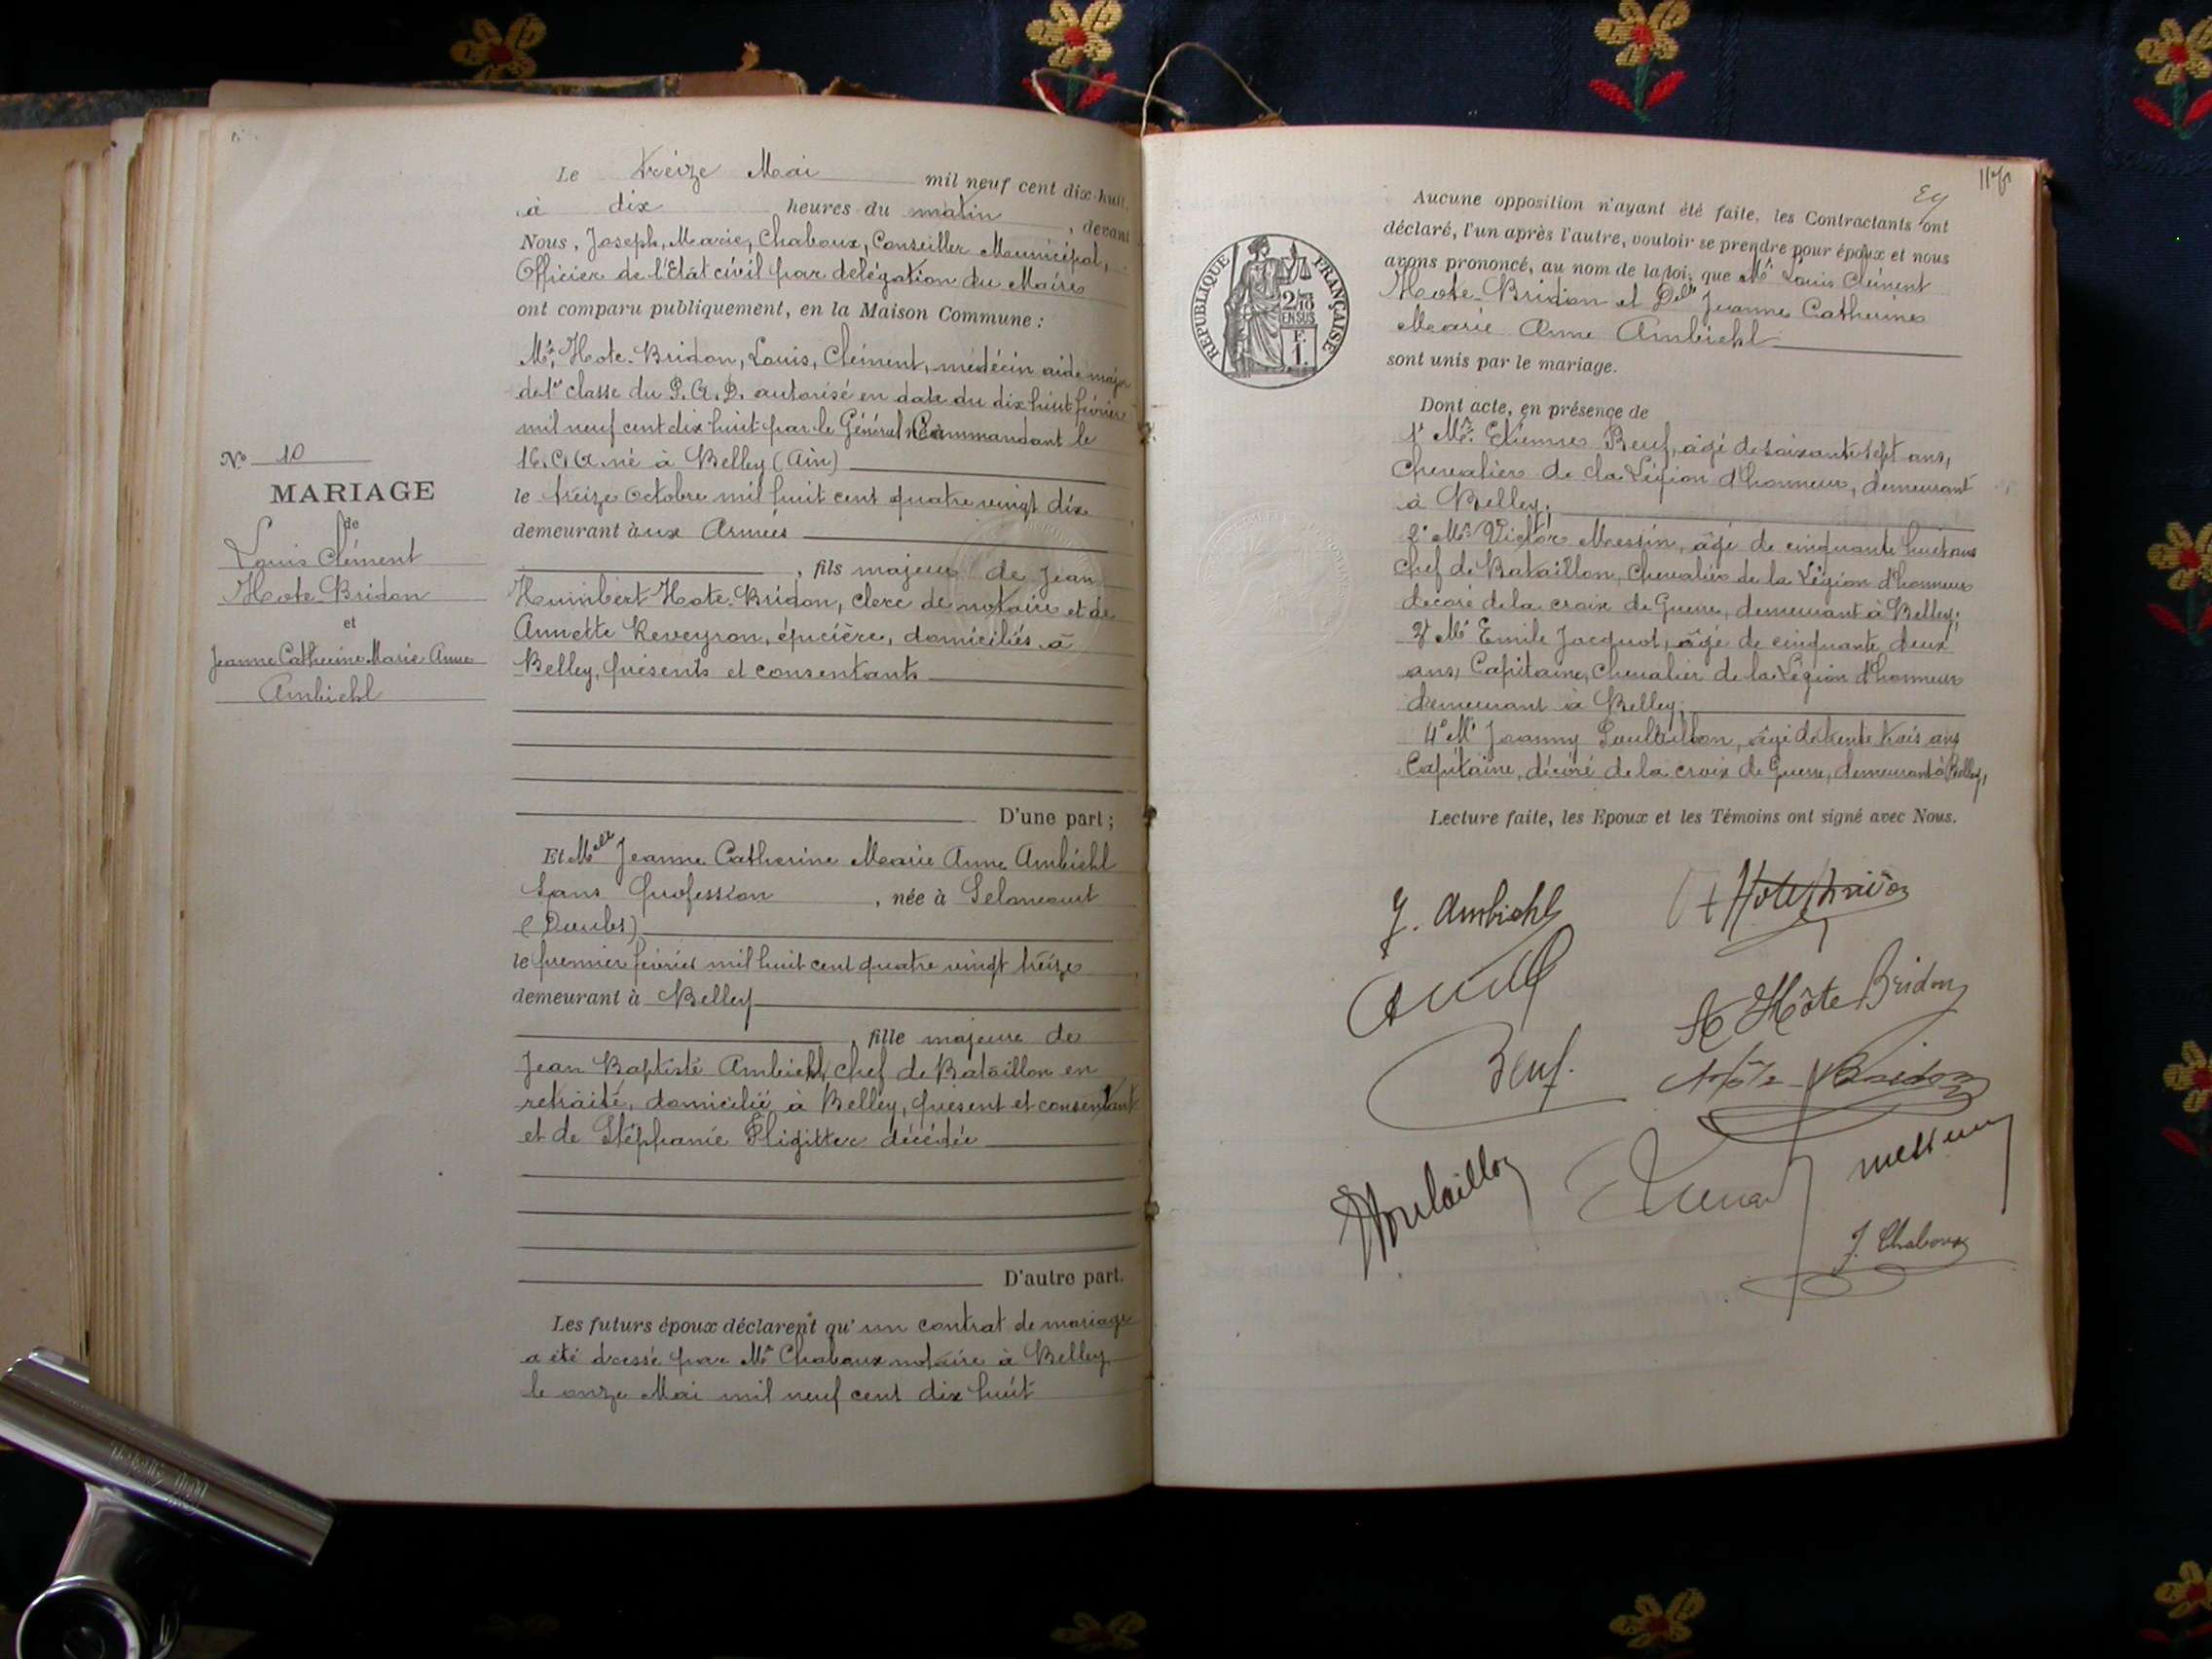 Le treize Mai mil neuf cent dix-huit,
à dix heures du matin, devant
Nous, Joseph, Marie, Chaboux, Conseiller Municipal,
Officier de l'Etat civil par delégation du Maire
ont comparu publiquement, en la Maison Commune :
Mr. Hote-Bridon, Louis, Clément, médécin aide major
de 1re classe du P.A.D. autorisé en date du dix huit février
mil neuf cent dix huit par le Général Commandant le
16. C. A. né à Belley (Ain)
le treize Octobre mil huit cent quatre vingt dix
demeurant aux Armées
, fils majeur de Jean
Humbert Hote-Bridon, clerc de notaire et de
Annette Reveyron, épicière, domiciliés à
Belley, présents et consentants
D'une part ;
Et Melle Jeanne Catherine Marie Anne Ambiehl
sans profession, née à Seloncourt
(Doubs)
le premier février mil huit cent quatre vingt treize
demeurant à Belley
, fille majeure de
Jean Baptiste Ambiehl, chef de Bataillon en
retraite, domicilié à Belley, présent et consentant
et de Stéphanie décédée
D'autre part.
Les futurs époux déclarent qu'un contrat de mariage
a été dressé par Me Chaboux notaire à Belley
le onze Mai mil neuf cent dix huit
N° 10
MARIAGE
de
Louis Clément
Hote-Bridon
et
Jeanne Catherine Marie Anne
Ambiehl
REPUBLIQUE FRANÇAISE
2/10
EN SUS
F.
1.
Aucune opposition n'ayant été faite, les Contractants ont
déclaré, l'un après l'autre, vouloir se prendre pour époux et nous
avons prononcé, au nom de la loi, que Mr Louis Clément
Hote-Bridon et Delle Jeanne Catherine
Marie Anne Ambiehl
sont unis par le mariage.
Dont acte, en présence de
1° Mr. Etienne Beuf, âgé de soixante sept ans,
Chevalier de la Légion d'honneur, demeurant
à Belley.
2° Mr Victor Messin, âgé de cinquante huit ans
Chef de Bataillon, Chevalier de la Légion d'honneur
decoré de la croix de Guerre, demeurant à Belley;
3° Mr Emile Jacquot, âgé de cinquante deux
ans, Capitaine, Chevalier de la Légion d'honneur
demeurant à Belley;
4° Mr Joanny, âgé de trente trois ans
Capitaine, décoré de la croix de Guerre, demeurant à Belley,
Lecture faite, les Epoux et les Témoins ont signé avec Nous.
J. Ambiehl
Hote Bridon
Hôte Bridon
Beuf.
Hôte-Bridon
J. Chaboux